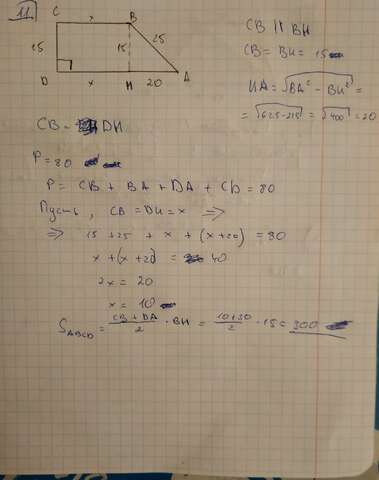 11.
C
x
B
15
15
25
D
x
H
20
A
CB || BH
CB = BH = 15
HA = √BA² - BH² =
= √625-225 = √400 = 20
CB = DH
P = 80
P = CB + BA + DA + CD = 80
Пусть, CB = DH = x ⇒
⇒ 15 + 25 + x + (x+20) = 80
x + (x+20) = 40
2x = 20
x = 10
S_ABCD = CB + DA / 2 · BH = 10+30 / 2 · 15 = 300